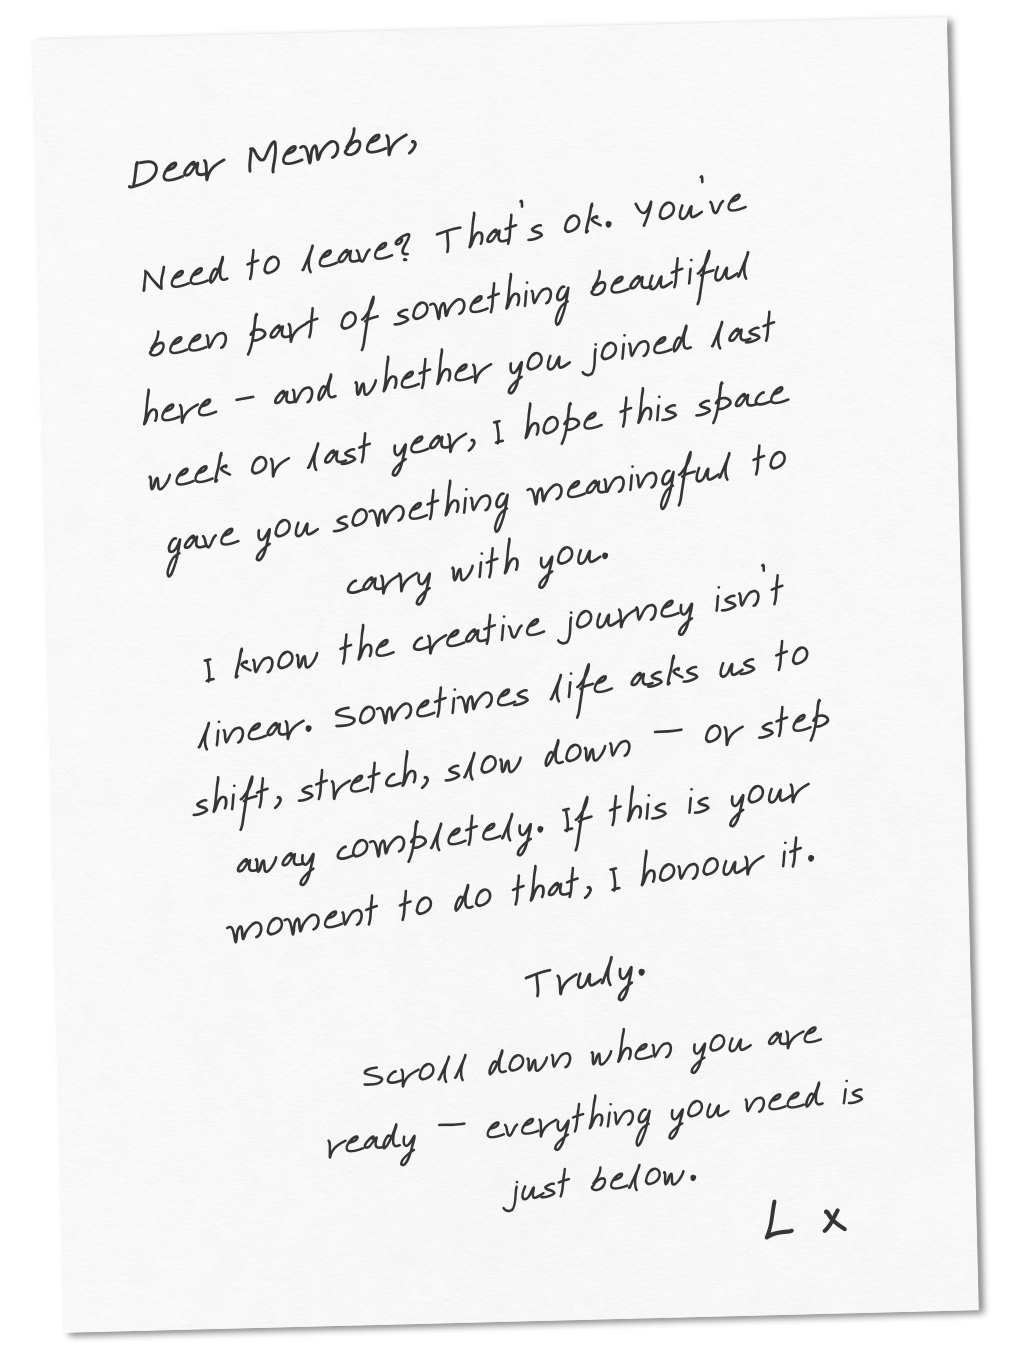 Dear Member,
Need to leave? That's ok. You've
been part of something beautiful
here – and whether you joined last
week or last year, I hope this space
gave you something meaningful to
carry with you.
I know the creative journey isn't
linear. Sometimes life asks us to
shift, stretch, slow down – or step
away completely. If this is your
moment to do that, I honour it.
Truly.
Scroll down when you are
ready – everything you need is
just below.
L x